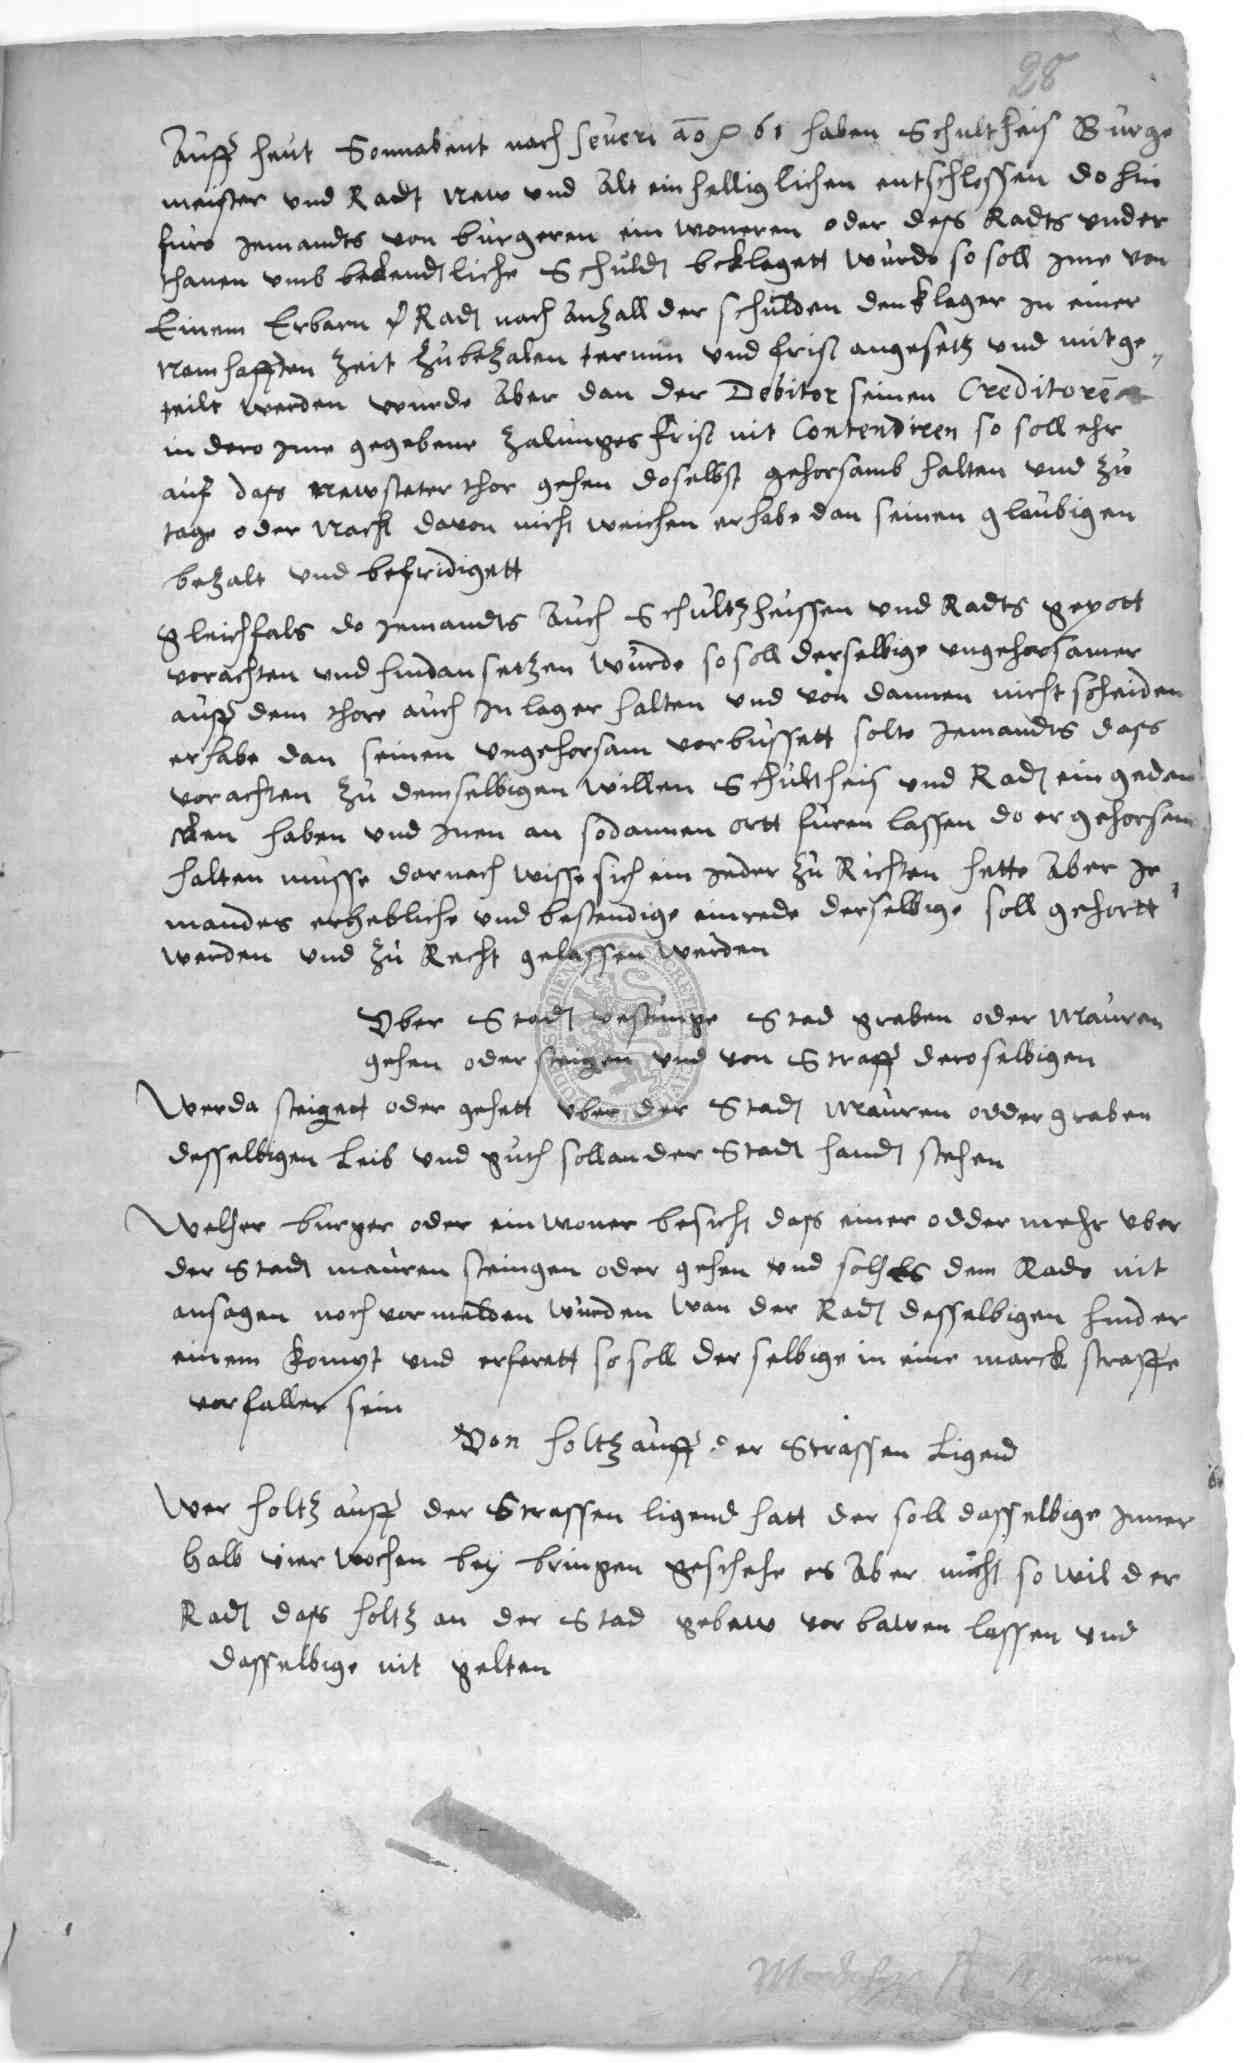 28
Auff heut Sonnabent nach Severi ao 61 haben Schultheis Burge
meister vnd Radt New vnd Alt einhelliglichen entschlossen do hin
furo jemandts von burgeren ein woneren oder dess Radts vnder
thanen vmb bekendtliche Schuldt beklagett wurde so soll jme von
Einem Erbarn Radt nach Anzall der schulden den kleger in einer
Nemhafften Zeit Zubezalen termin vnd frist angesetz vnd mitge„
teilt werden wurde Aber dan der Debitor seinen Creditorē
in dero jme gegebene Zalunges frist nit Contentiren so soll ehr
auf dass newstater thor gehen doselbst gehorsamb halten vnd zu
tage oder Nacht davon nicht weichen er habe dan seinen glaubigen
bezalt vnd befridigett
Gleichfals do jemandts Auch Schultzheissen vnd Radts gepott
vorachten vnd hindan setzen wurde so soll derselbige vngehorsamer
auff dem thore auch in lager halten vnd von dannen nicht scheiden
er habe dan seinen vngehorsam vorbussett solte jemandts dass
vorachten zu demselbigen willen Schultheis vnd Radt ein gedan
cken haben vnd jnen an sodannen ortt furen lassen do er gehorsam
halten musse darnach wisse sich ein jeder zu Richten hette Aber je
mandes erhebliche vnd bestendige einrede derselbige soll gehortt
werden vnd zu Recht gelassen werden
Vber Stadt vestunge Stad graben oder Mauren
gehen oder steigen vnd von Straff deroselbigen
Werda steigett oder gehett vber der Stadt Mauren odder graben
desselbigen Leib vnd guth soll an der Stadt handt stehen
Welher burger oder einwoner besicht dass einer odder mehr vber
der Stadt mauren steingen oder gehen vnd solhes dem Rade nit
ansagen noch vormelden wurden wan der Radt desselbigen hinder
einem kompt vnd erferett so soll derselbige in eine marck straffe
vorfaller sein
Von holtz auff der Strassen Ligend
Wer holtz auff der Strassen ligend hatt der soll dasselbige inner
halb vier wochen bey bringen geschehe es Aber nicht so wil der
Radt dass holtz an der Stad gebew vor bawen lassen vnd
dasselbige nit gelten